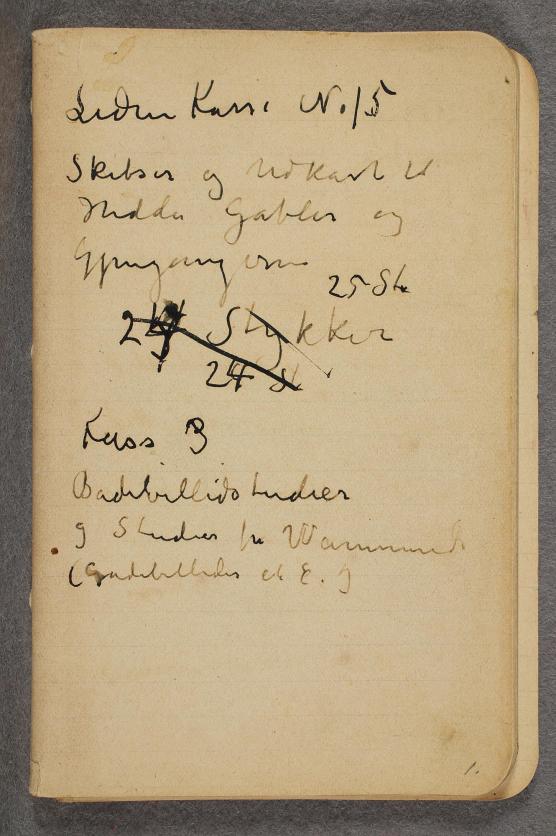 Liden Kasse No 15
Skitser og Udkast til
Hedda Gabler og
Gjengangerne
25 St
24 Stykker
24 St
Kass 3
Badebilledstudier
og Studier fra Warnemünde
(Gadebilleder
1.